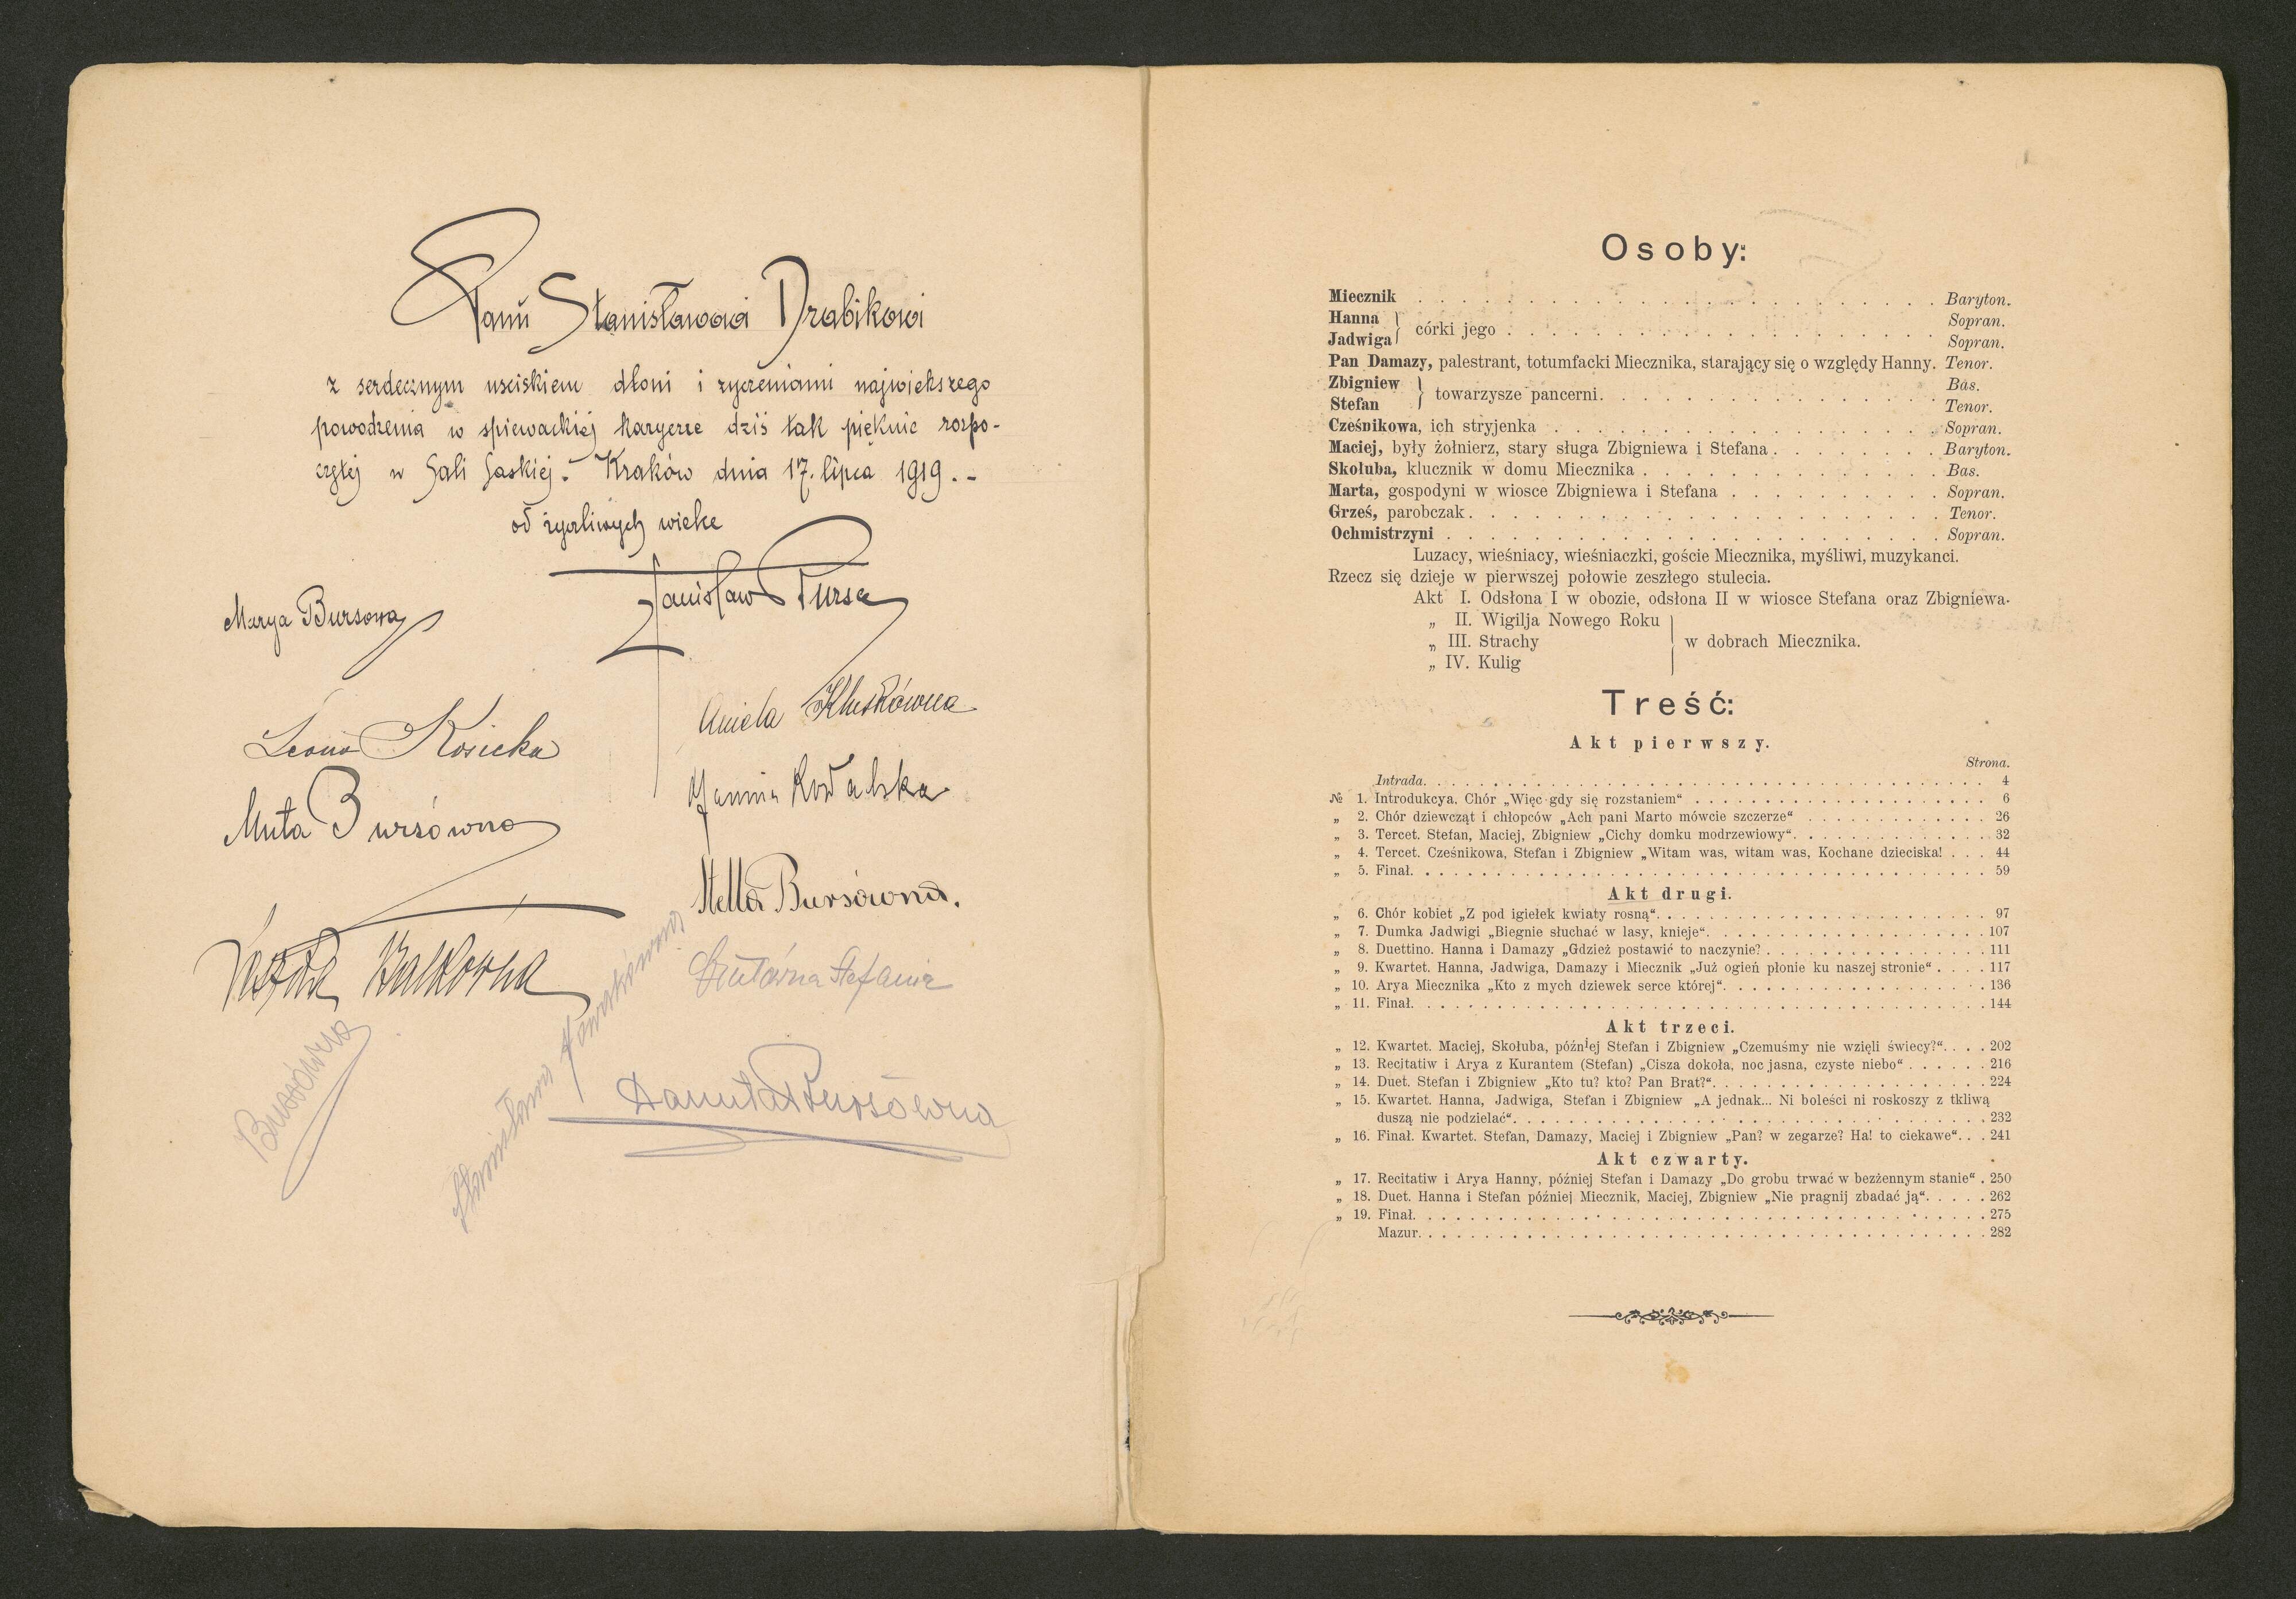 Panu Stanisławowi Drabikowi
z serdecznym usciskiem dłoni i zyczeniami najwiekszego
powodzenia w spiewackiej karyerze dziś tak pięknie rozpo-
czętej w Sali Saskiej. Kraków dnia 17. lipca 1919. -
od życzliwych wielce
Stanisław Bursa
Marya Bursowa
Aniela Kluskówna
Leona Kosicka
Janina Kowalska
Muta Bursówna
Stella Bursówna.
Stefania
Stanisława Nowakówna
Danuta Bursówna
Osoby:
Miecznik . . . Baryton.
Hanna } córki jego . . . Sopran.
Jadwiga } Sopran.
Pan Damazy, palestrant, totumfacki Miecznika, starający się o względy Hanny. Tenor.
Zbigniew } towarzysze pancerni. . . . Bas.
Stefan } Tenor.
Cześnikowa, ich stryjenka . . . Sopran.
Maciej, były żołnierz, stary sługa Zbigniewa i Stefana . . . Baryton.
Skołuba, klucznik w domu Miecznika . . . Bas.
Marta, gospodyni w wiosce Zbigniewa i Stefana . . . Sopran.
Grześ, parobczak . . . Tenor.
Ochmistrzyni . . . Sopran.
Luzacy, wieśniacy, wieśniaczki, goście Miecznika, myśliwi, muzykanci.
Rzecz się dzieje w pierwszej połowie zeszłego stulecia.
Akt I. Odsłona I w obozie, odsłona II w wiosce Stefana oraz Zbigniewa.
„ II. Wigilja Nowego Roku
„ III. Strachy } w dobrach Miecznika.
„ IV. Kulig
Treść:
Akt pierwszy.
Strona.
Intrada. . . . 4
№ 1. Introdukcya. Chór „Więc gdy się rozstaniem“ . . . 6
„ 2. Chór dziewcząt i chłopców „Ach pani Marto mówcie szczerze“ . . . 26
„ 3. Tercet. Stefan, Maciej, Zbigniew „Cichy domku modrzewiowy“. . . . 32
„ 4. Tercet. Cześnikowa, Stefan i Zbigniew „Witam was, witam was, Kochane dzieciska! . . . 44
„ 5. Finał. . . . 59
Akt drugi.
„ 6. Chór kobiet „Z pod igiełek kwiaty rosną“. . . . 97
„ 7. Dumka Jadwigi „Biegnie słuchać w lasy, knieje“. . . . 107
„ 8. Duettino. Hanna i Damazy „Gdzież postawić to naczynie? . . . 111
„ 9. Kwartet. Hanna, Jadwiga, Damazy i Miecznik „Już ogień płonie ku naszej stronie“ . . . 117
„ 10. Arya Miecznika „Kto z mych dziewek serce której“. . . . 136
„ 11. Finał. . . . 144
Akt trzeci.
„ 12. Kwartet. Maciej, Skołuba, później Stefan i Zbigniew „Czemuśmy nie wzięli świecy?“. . . . 202
„ 13. Recitatiw i Arya z Kurantem (Stefan) „Cisza dokoła, noc jasna, czyste niebo“ . . . 216
„ 14. Duet. Stefan i Zbigniew „Kto tu? kto? Pan Brat?“. . . . 224
„ 15. Kwartet. Hanna, Jadwiga, Stefan i Zbigniew „A jednak... Ni boleści ni roskoszy z tkliwą
duszą nie podzielać“. . . . 232
„ 16. Finał. Kwartet. Stefan, Damazy, Maciej i Zbigniew „Pan? w zegarze? Ha! to ciekawe“. . . 241
Akt czwarty.
„ 17. Recitatiw i Arya Hanny, później Stefan i Damazy „Do grobu trwać w bezżennym stanie“ . 250
„ 18. Duet. Hanna i Stefan później Miecznik, Maciej, Zbigniew „Nie pragnij zbadać ją“. . . . 262
„ 19. Finał. . . . 275
Mazur. . . . 282